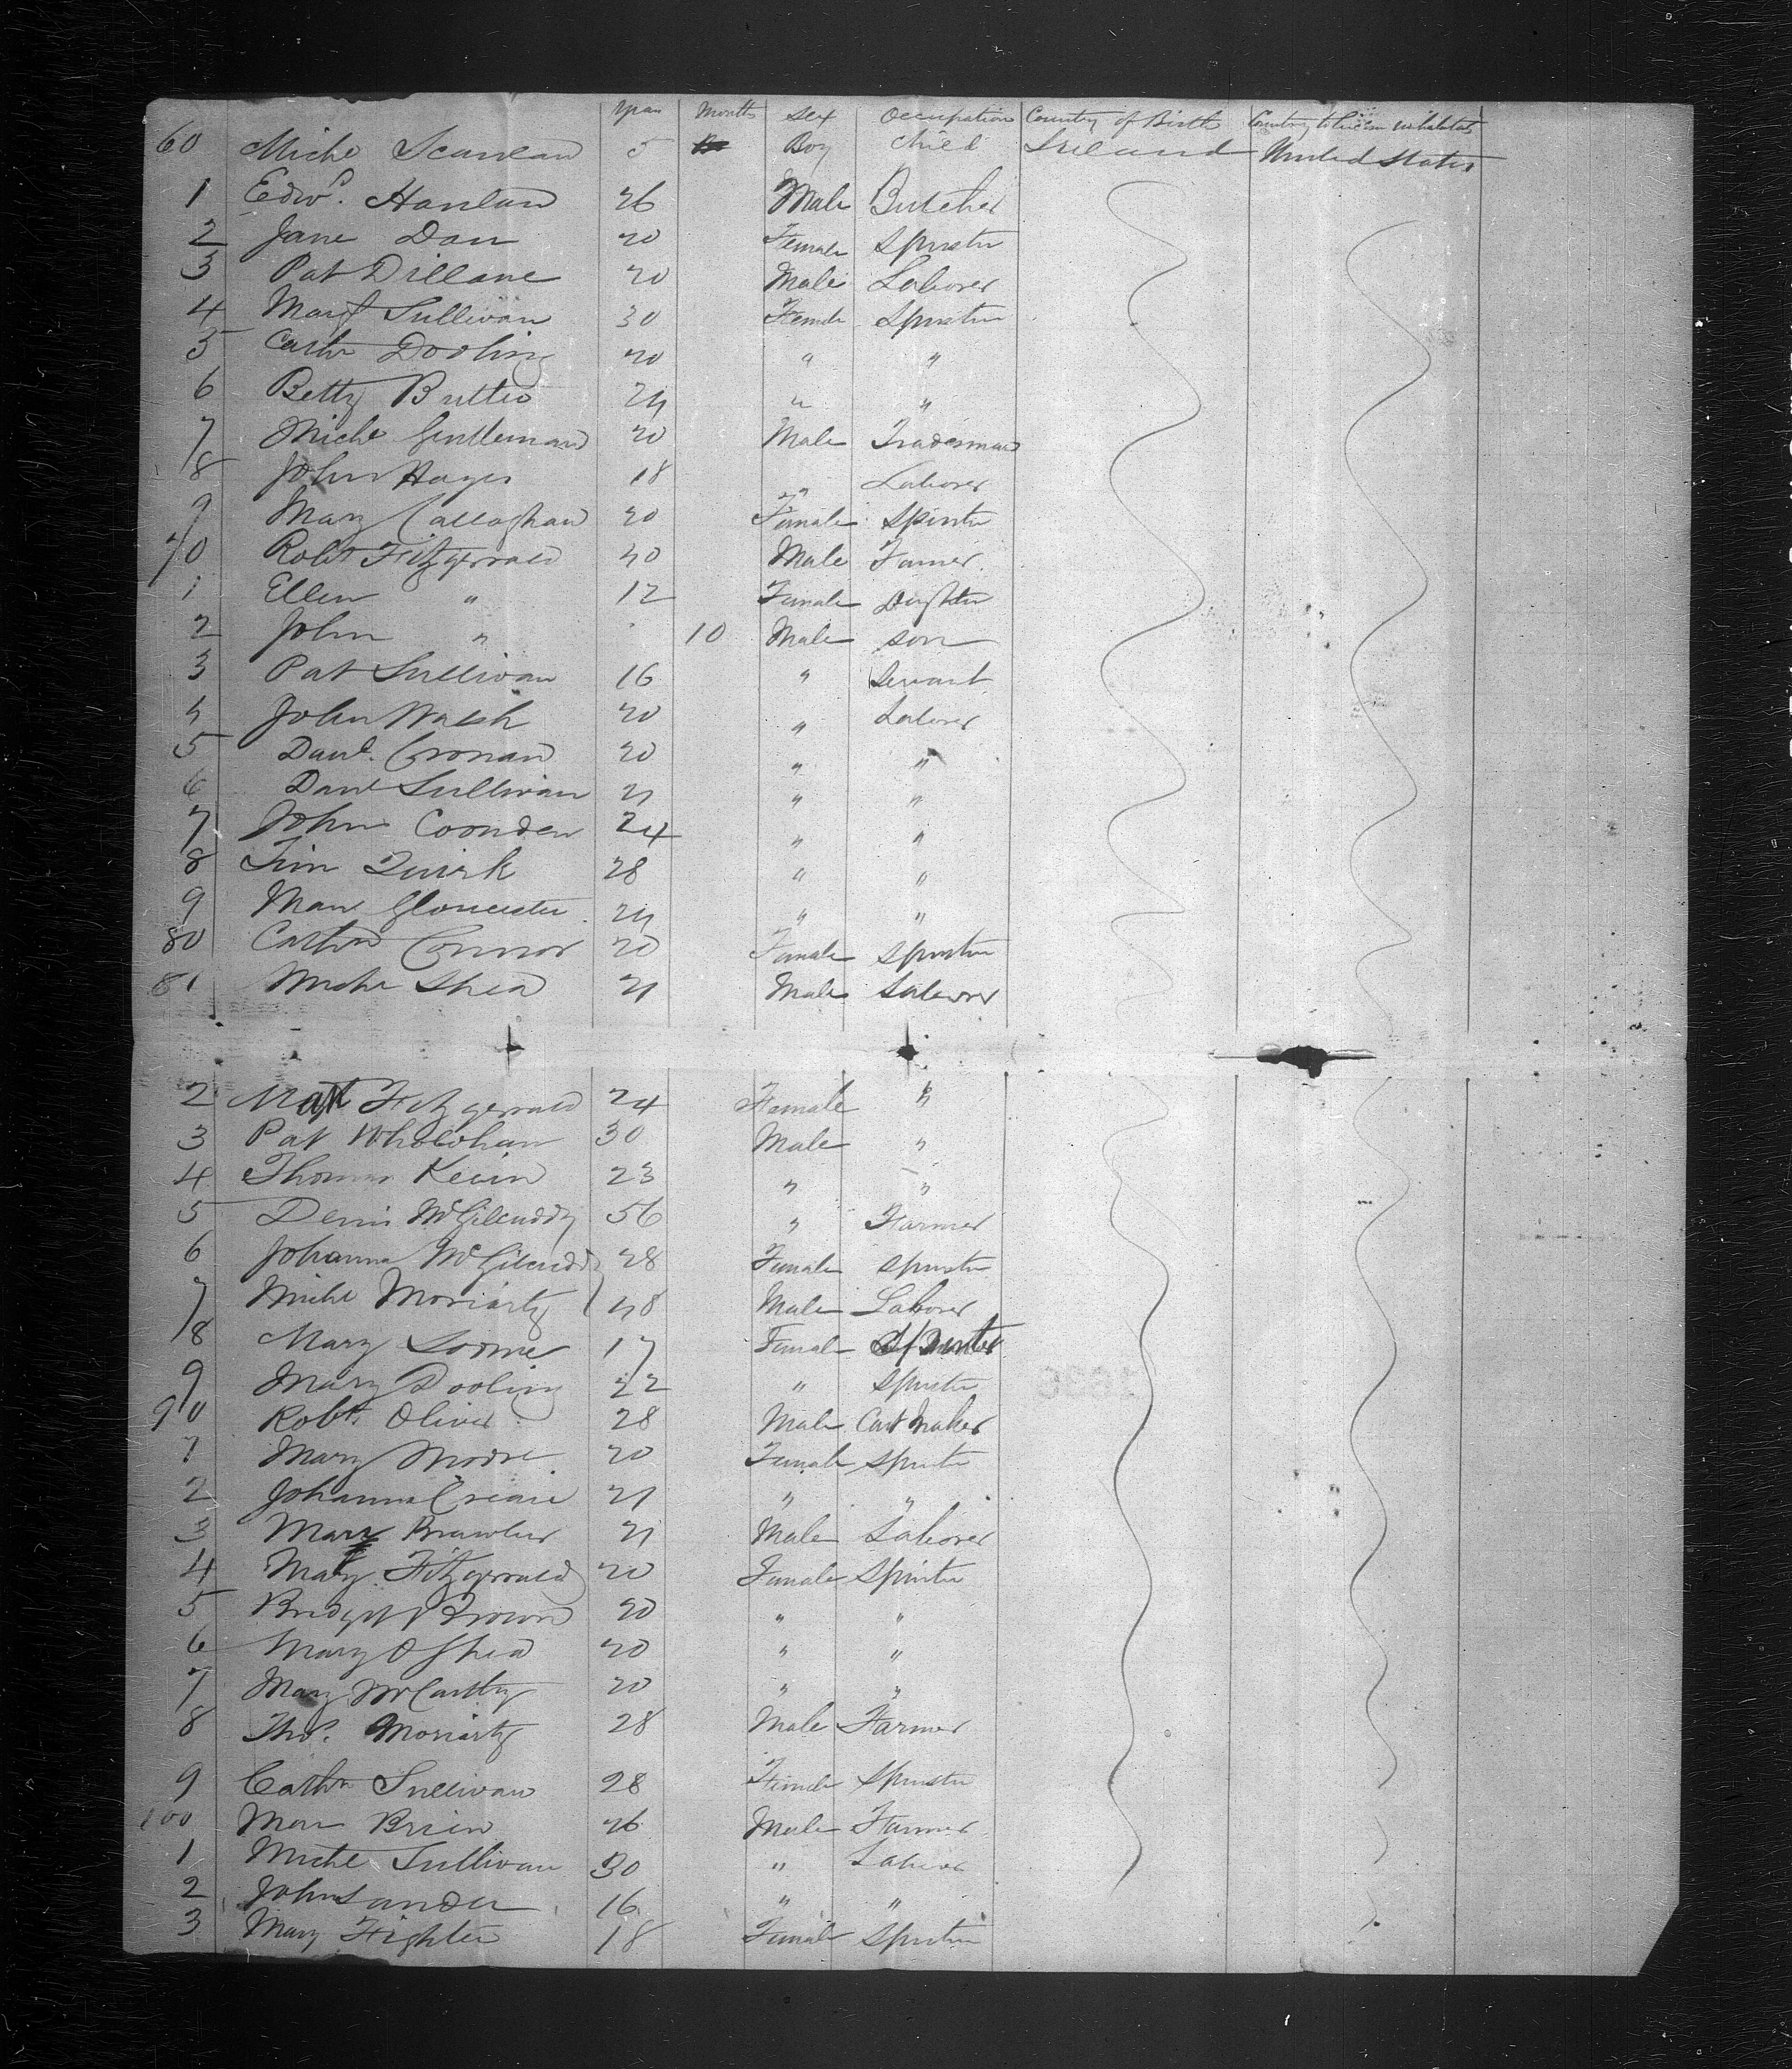 Years Months Sex Occupation Country of Birth Country to
60 Michl Scanlan 5 Boy Child Ireland United States
1 Edwd. Hanlan 26 Male Butcher
2 Jane Dan 20 Female Spinster
3 Pat Dillane 20 Male Laborer
4 Margt Sullivan 30 Female Spinster
5 Cathe Dooling 20 " "
6 Betty 24 " "
7 Michl Gentleman 20 Male Tradesman
8 John Hayes 18 " Laborer
9 Mary Callaghan 20 Female Spinster
70 Robt Fitzgerrald 40 Male Farmer
1 Ellen " 12 Female Daughter
2 John " 10 Male Son
3 Pat Sullivan 16 " Servant
4 John Walsh 20 " Laborer
5 Danl. Cronan 20 " "
6 Danl Sullivan 21 " "
7 John Coonden 24 " "
8 Tim Quirk 28 " "
9 Gloucester 24 " "
80 Cathn Connor 20 Female Spinster
81 Michl Shea 21 Male Laborer
2 Fitzgerrald 24 Female "
3 Pat Wholohan 30 Male "
4 Thomas Kevin 23 " "
5 Denis McGilcuddy 56 " Farmer
6 Johanna McGilcuddy 28 Female Spinster
7 Michl Moriarty 48 Male Laborer
8 Mary 17 Female Spinster
9 Mary Dooling 22 " Spinster
90 Robt. Oliver 28 Male Cart Maker
1 Mary Moore 20 Female Spinster
2 Johanna 21 " "
3 21 Male Laborer
4 Mary Fitzgerrald 20 Female Spinster
5 Bridget Brown 20 " "
6 Mary O Shea 20 " "
7 Mary McCarthy 20 " "
8 Thos. Moriarty 28 Male Farmer
9 Cathn Sullivan 28 Female Spinster
100 Brien 26 Male Farmer
1 Michl Sullivan 30 " Laborer
2 John Lander 16 " "
3 Mary Fighter 18 Female Spinster